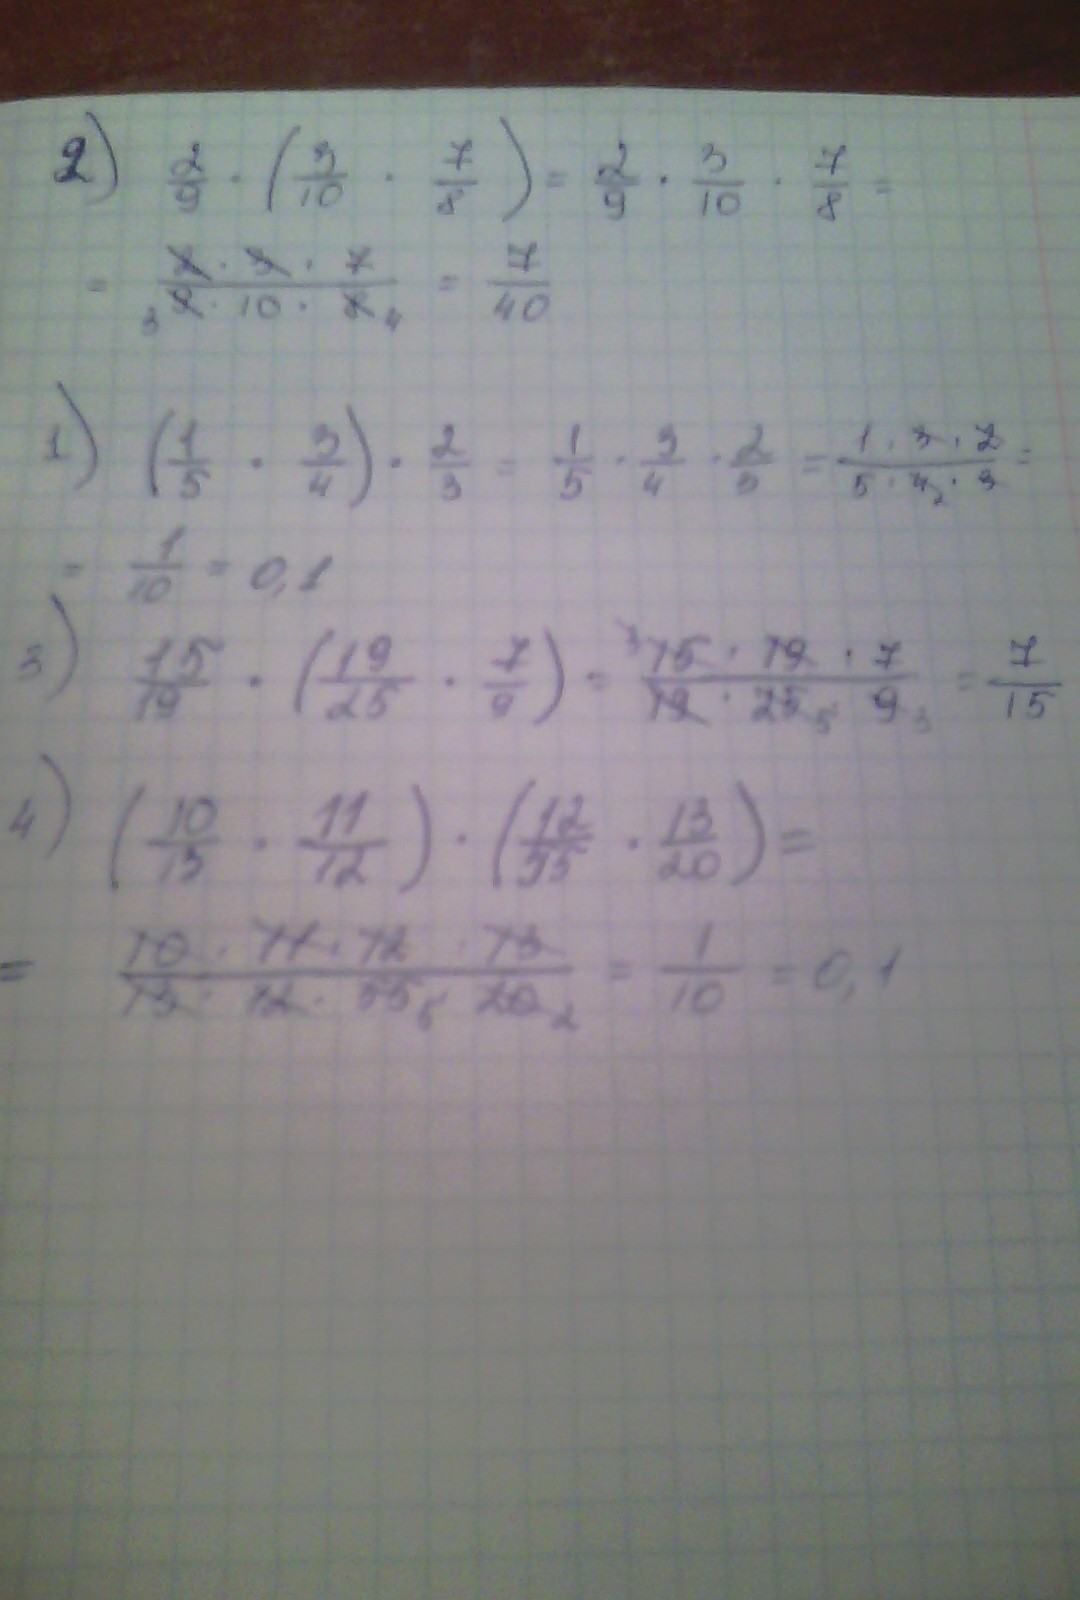 2) 2/9 · (3/10 · 7/8) = 2/9 · 3/10 · 7/8 =
= 2 · 3 · 7 / 3 9 · 10 · 8 4 = 7/40
1) (1/5 · 3/4) · 2/3 = 1/5 · 3/4 · 2/3 = 1 · 3 · 2 / 5 · 4 2 · 3 =
= 1/10 = 0,1
3) 15/19 · (19/25 · 7/9) = 3 15 · 19 · 7 / 19 · 25 5 9 3 = 7/15
4) (10/13 · 11/12) · (12/55 · 13/20) =
= 10 · 11 · 12 · 13 / 13 · 12 · 55 5 20 2 = 1/10 = 0,1